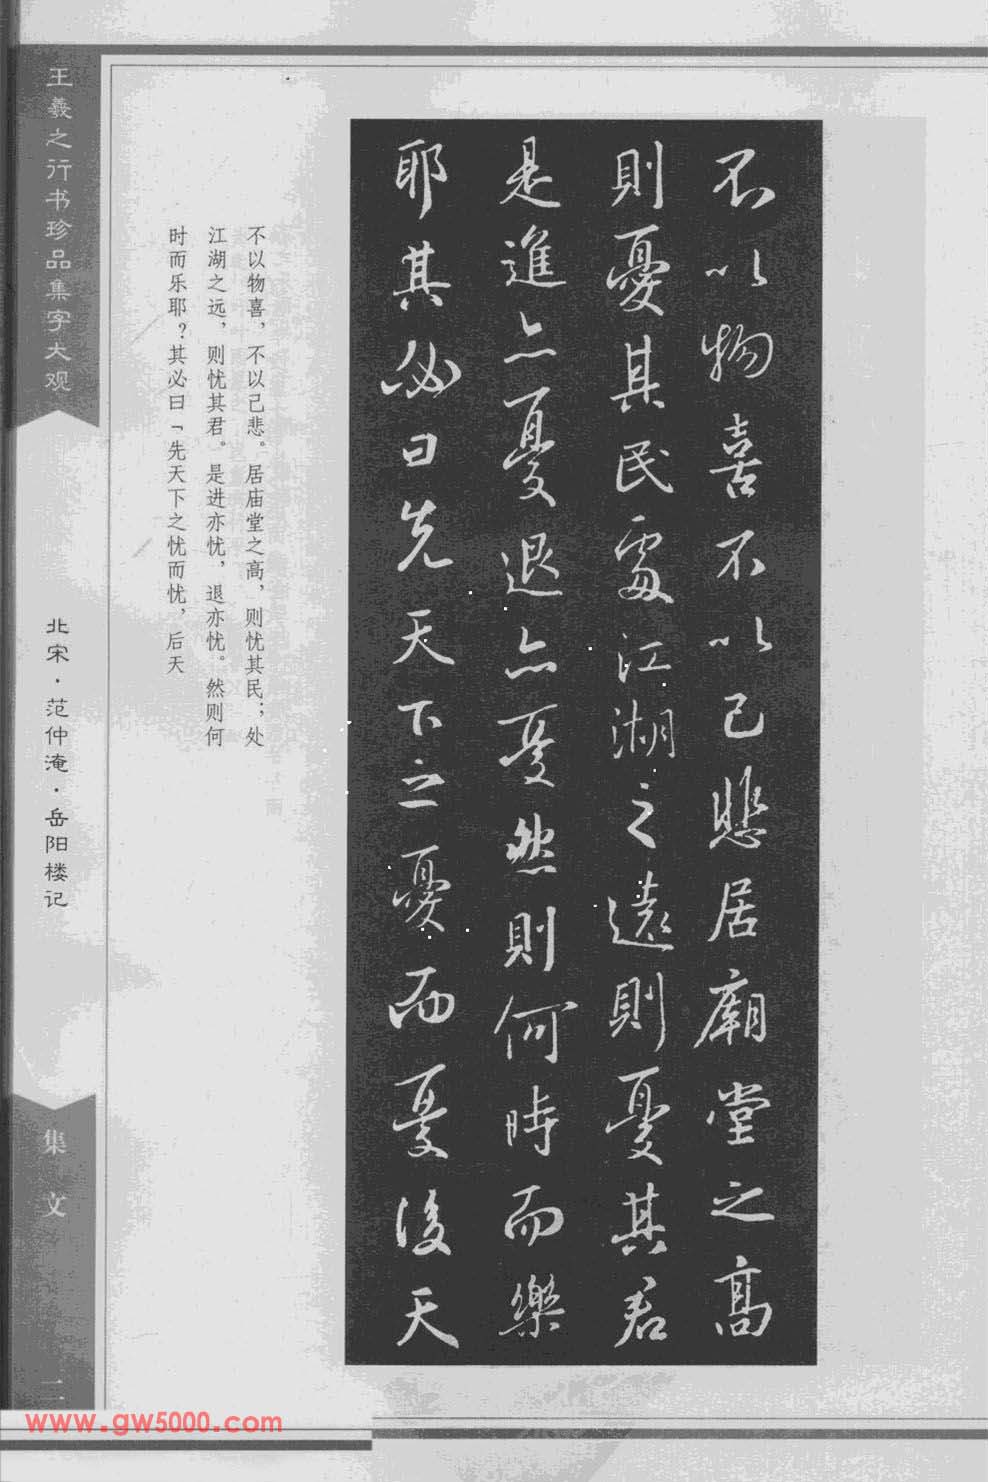 不以物喜不以己悲居廟堂之高
則憂其民處江湖之遠則憂其君
是進亦憂退亦憂然則何時而樂
耶其必曰先天下之憂而憂後天
不以物喜，不以己悲。居庙堂之高，则忧其民；处
江湖之远，则忧其君。是进亦忧，退亦忧。然则何
时而乐耶？其必曰「先天下之忧而忧，后天
王羲之行书珍品集字大观
北宋·范仲淹·岳阳楼记
集文
二
www.gw5000.com